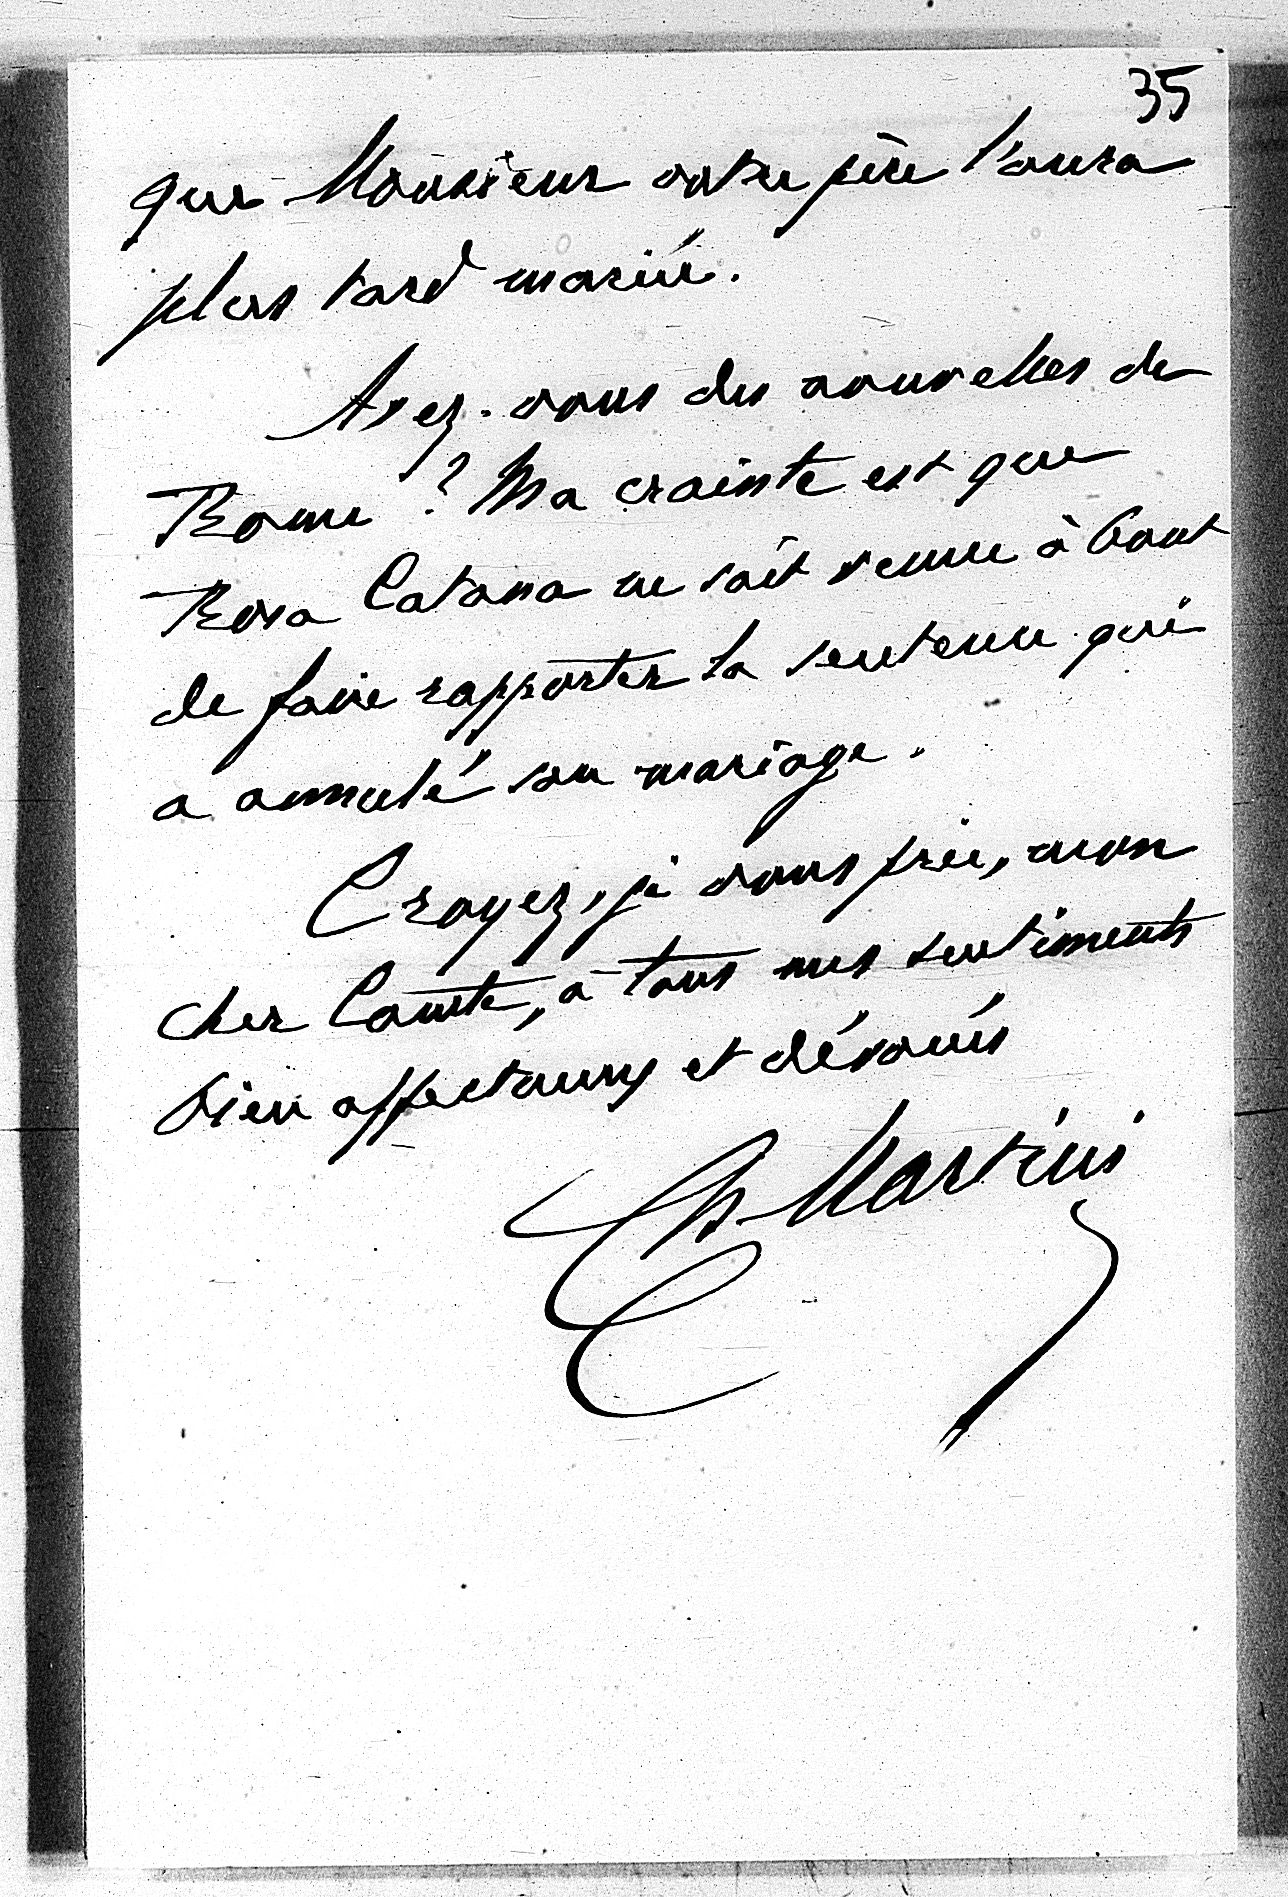 35
que Monsieur votre père l'aura
plus tard mariée.
Avez-vous des nouvelles de
Rome ? Ma crainte est que
Rosa Catana ne soit venue à bout
de faire rapporter la sentence qui
a annulé son mariage.
Croyez, je vous prie, mon
cher Comte, à tous mes sentiments
bien affectueux et dévoués
Ch Martini